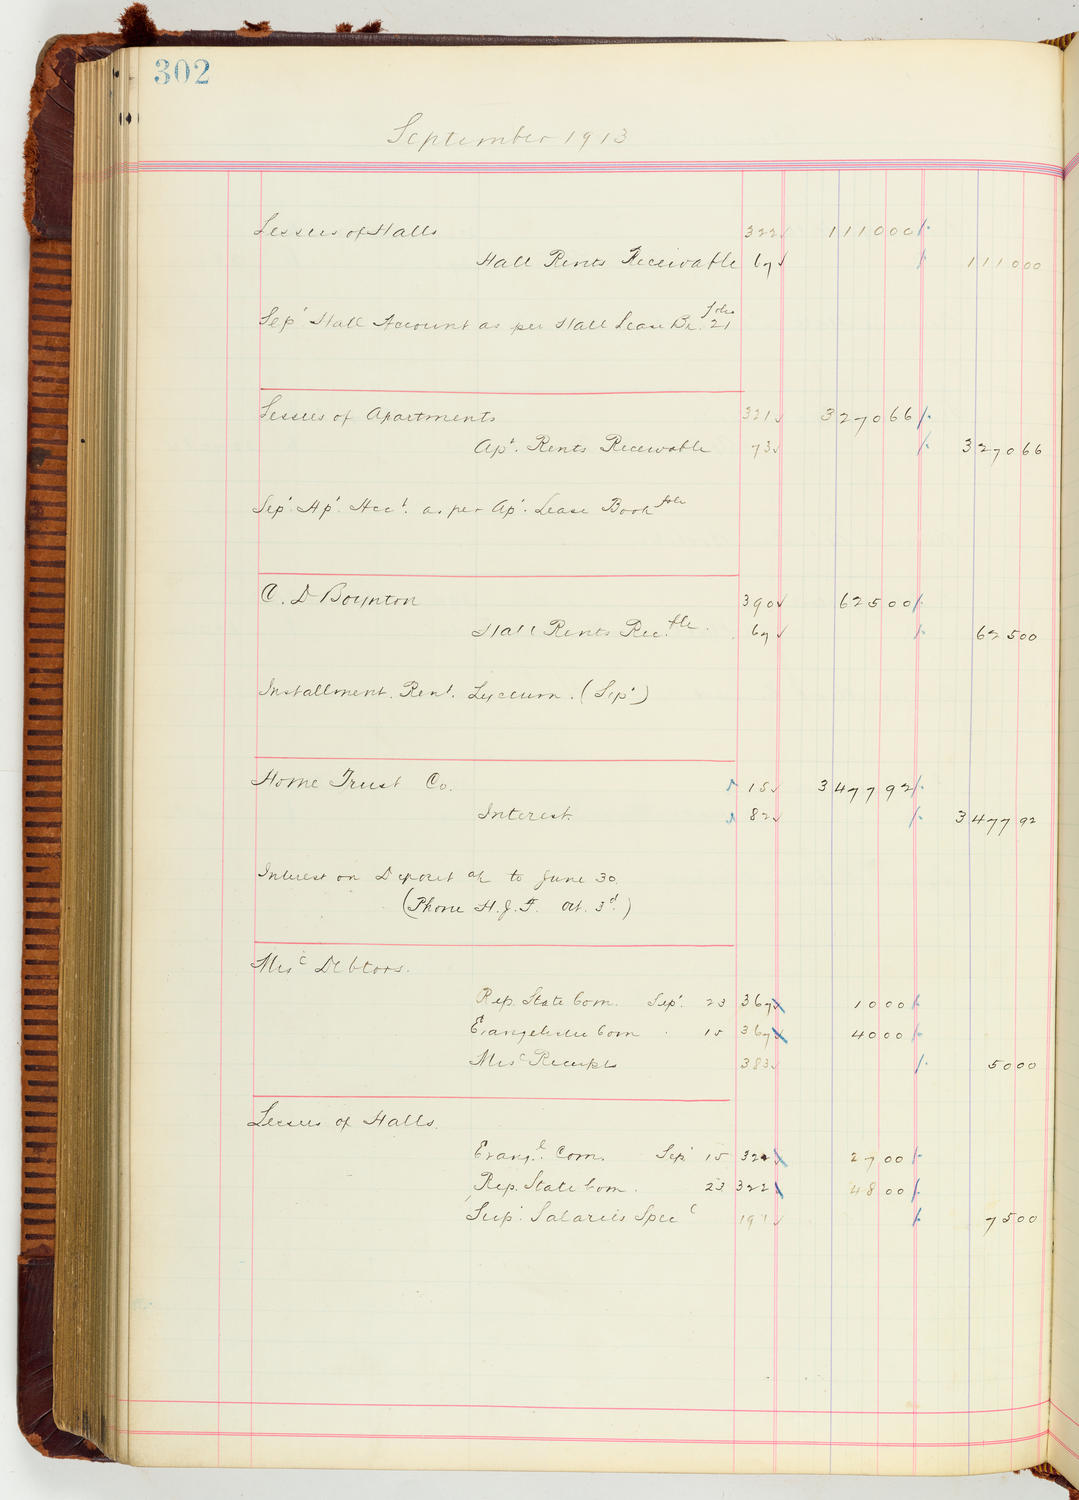 302
September 1913
Lessees of Halls 322 111000
Hall Rents Receivable 67 111000
folio
Sep' Hall Account as per Hall Lease Bk. 21
Lessees of Apartments 321 327066
Ap'. Rents Receivable 73 327066
Sep'. Ap'. Acc'. as per Ap'. Lease Book folio
C. D Boynton 390 62500
Hall Rents Rec.ble 67 62500
Installment. Rent. Lyceum. (Sep')
Home Trust Co. 15 347792
Interest 82 347792
Interest on Deposit to June 30.
(Phone H.J.F. Oct. 3d.)
Misc Debtors.
Rep. State Com. Sep'. 23 367 1000
Evangelistic Com 15 367 4000
Misc Receipts 383 5000
Lessees of Halls.
Evang.l. Com. Sep' 15 322 2700
Rep. State Com. 23 322 4800
Sup'. Salaries Spec 191 7500